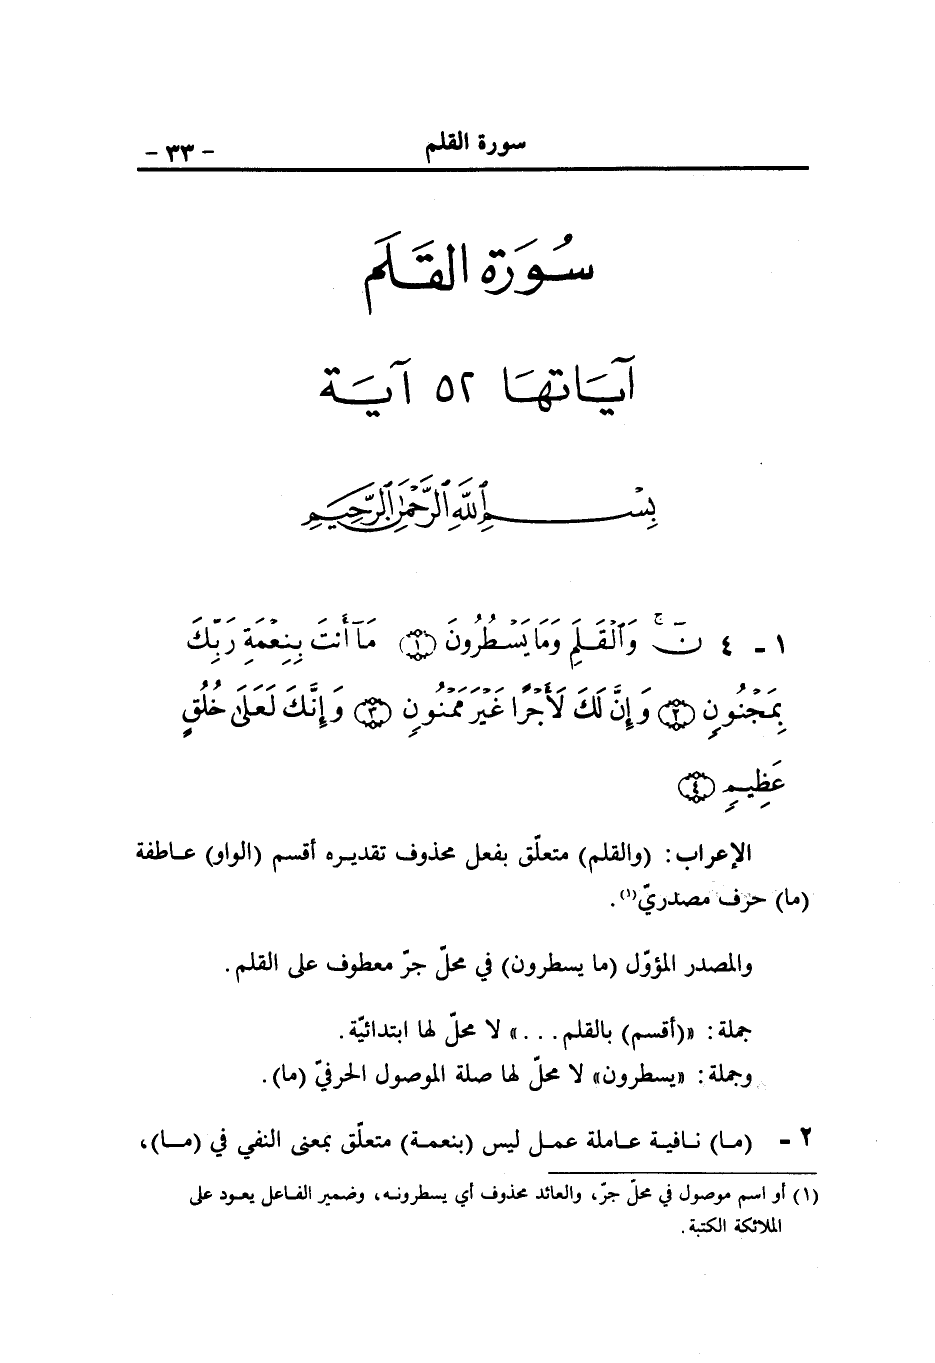 سورة القلم - ٣٣ -
سُورَة القَلَم
آيَاتهَا ٥٢ آيَة
بِسْمِ ٱللَّهِ ٱلرَّحْمَٰنِ ٱلرَّحِيمِ
١ - ٤ نٓ ۚ وَٱلْقَلَمِ وَمَا يَسْطُرُونَ ﴿١﴾ مَآ أَنتَ بِنِعْمَةِ رَبِّكَ
بِمَجْنُونٍ ﴿٢﴾ وَإِنَّ لَكَ لَأَجْرًا غَيْرَ مَمْنُونٍ ﴿٣﴾ وَإِنَّكَ لَعَلَىٰ خُلُقٍ
عَظِيمٍ ﴿٤﴾
الإعراب: (والقلم) متعلّق بفعل محذوف تقديره أقسم (الواو) عاطفة
(ما) حرف مصدريّ(١).
والمصدر المؤوّل (ما يسطرون) في محلّ جرّ معطوف على القلم.
جملة: «(أقسم) بالقلم...» لا محلّ لها ابتدائيّة.
وجملة: «يسطرون» لا محلّ لها صلة الموصول الحرفيّ (ما).
٢ - (ما) نافية عاملة عمل ليس (بنعمة) متعلّق بمعنى النفي في (ما)،
(١) أو اسم موصول في محلّ جرّ، والعائد محذوف أي يسطرونه، وضمير الفاعل يعود على
الملائكة الكتبة.